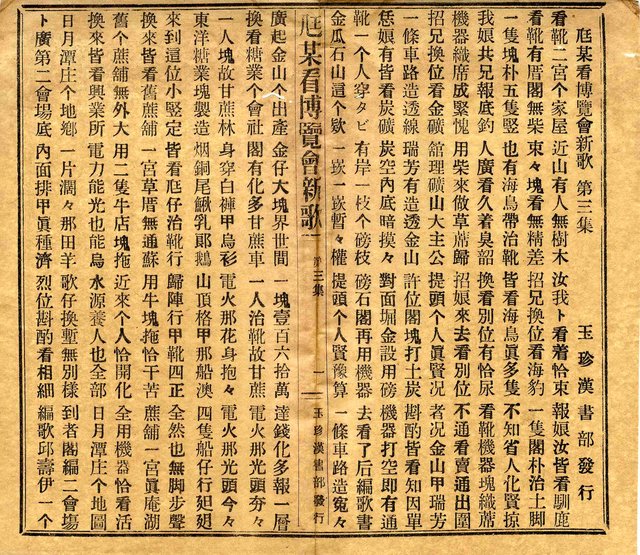 尫某看博覽會新歌 第三集 玉珍漢書部發行
看靴二宮个家屋 近山有人無樹木 汝我卜看着恰束 報娘汝皆看馴鹿
看靴有厝閣無柴 束々塊看無精差 招兄換位看海豹 一隻閣朴治土脚
一隻塊朴五隻竪 也有海鳥帶治靴 皆看海鳥眞多隻 不知省人化賢掠
我娘共兄報底釣 人廣看久着臭韶 換看別位有恰尿 看靴機器塊織蓆
機器織席成緊愧 用柴來做草蓆歸 招娘來去看別位 不通看賣通出圍
招兄換位看金礦 舘理礦山大主公 提頭个人眞賢况 者况金山甲瑞芳
一條車路造透線 瑞芳有造透金山 許位閣塊打土炭 斟酌皆看知因單
恁娘有皆看炭礦 炭空內底暗摸々 對面堀金設用磅 機器打空即有通
靴一个人穿タビ 有岸一枝个磅枝 磅石閣再用機器 去看了后編歌書
金瓜石山這个欵 一崁一崁暫々權 提頭个人賢豫算 一條車路造寃々
尫某看博覽會新歌 第三集 一 玉珍漢書部發行
廣起金山个出產 金仔大塊界世間 一塊壹百六拾萬 達錢化多報一層
換看糖業个會社 閣有化多甘蔗車 一人治靴故甘蔗 電火那光頭夯々
一人塊故甘蔗林 身穿白褲甲烏衫 電火那花身抱々 電火那光頭今々
東洋糖業塊製造 烟銅尾鰍乳郎鵝 山頂格甲那船澳 四隻船仔行廻廻
來到這位小竪定 皆看尫仔治靴行 歸陣行甲靴四正 全然也無脚步聲
換來皆看舊蔗舖 一宮草厝無通蘇 用牛塊拖恰干苦 蔗舖一宮眞庵湖
舊个蔗舖無外大 用二隻牛店塊拖 近來个人恰開化 全用機器恰看活
換來皆看興業所 電力能光也能烏 水源養人也全部 日月潭庄个地圖
日月潭庄个地鄉 一片濶々那田羊 歌仔換 無別樣 到者閣編二會塲
卜廣第二會塲底 內面排甲眞種濟 烈位斟酌看相細 編歌邱壽伊一个